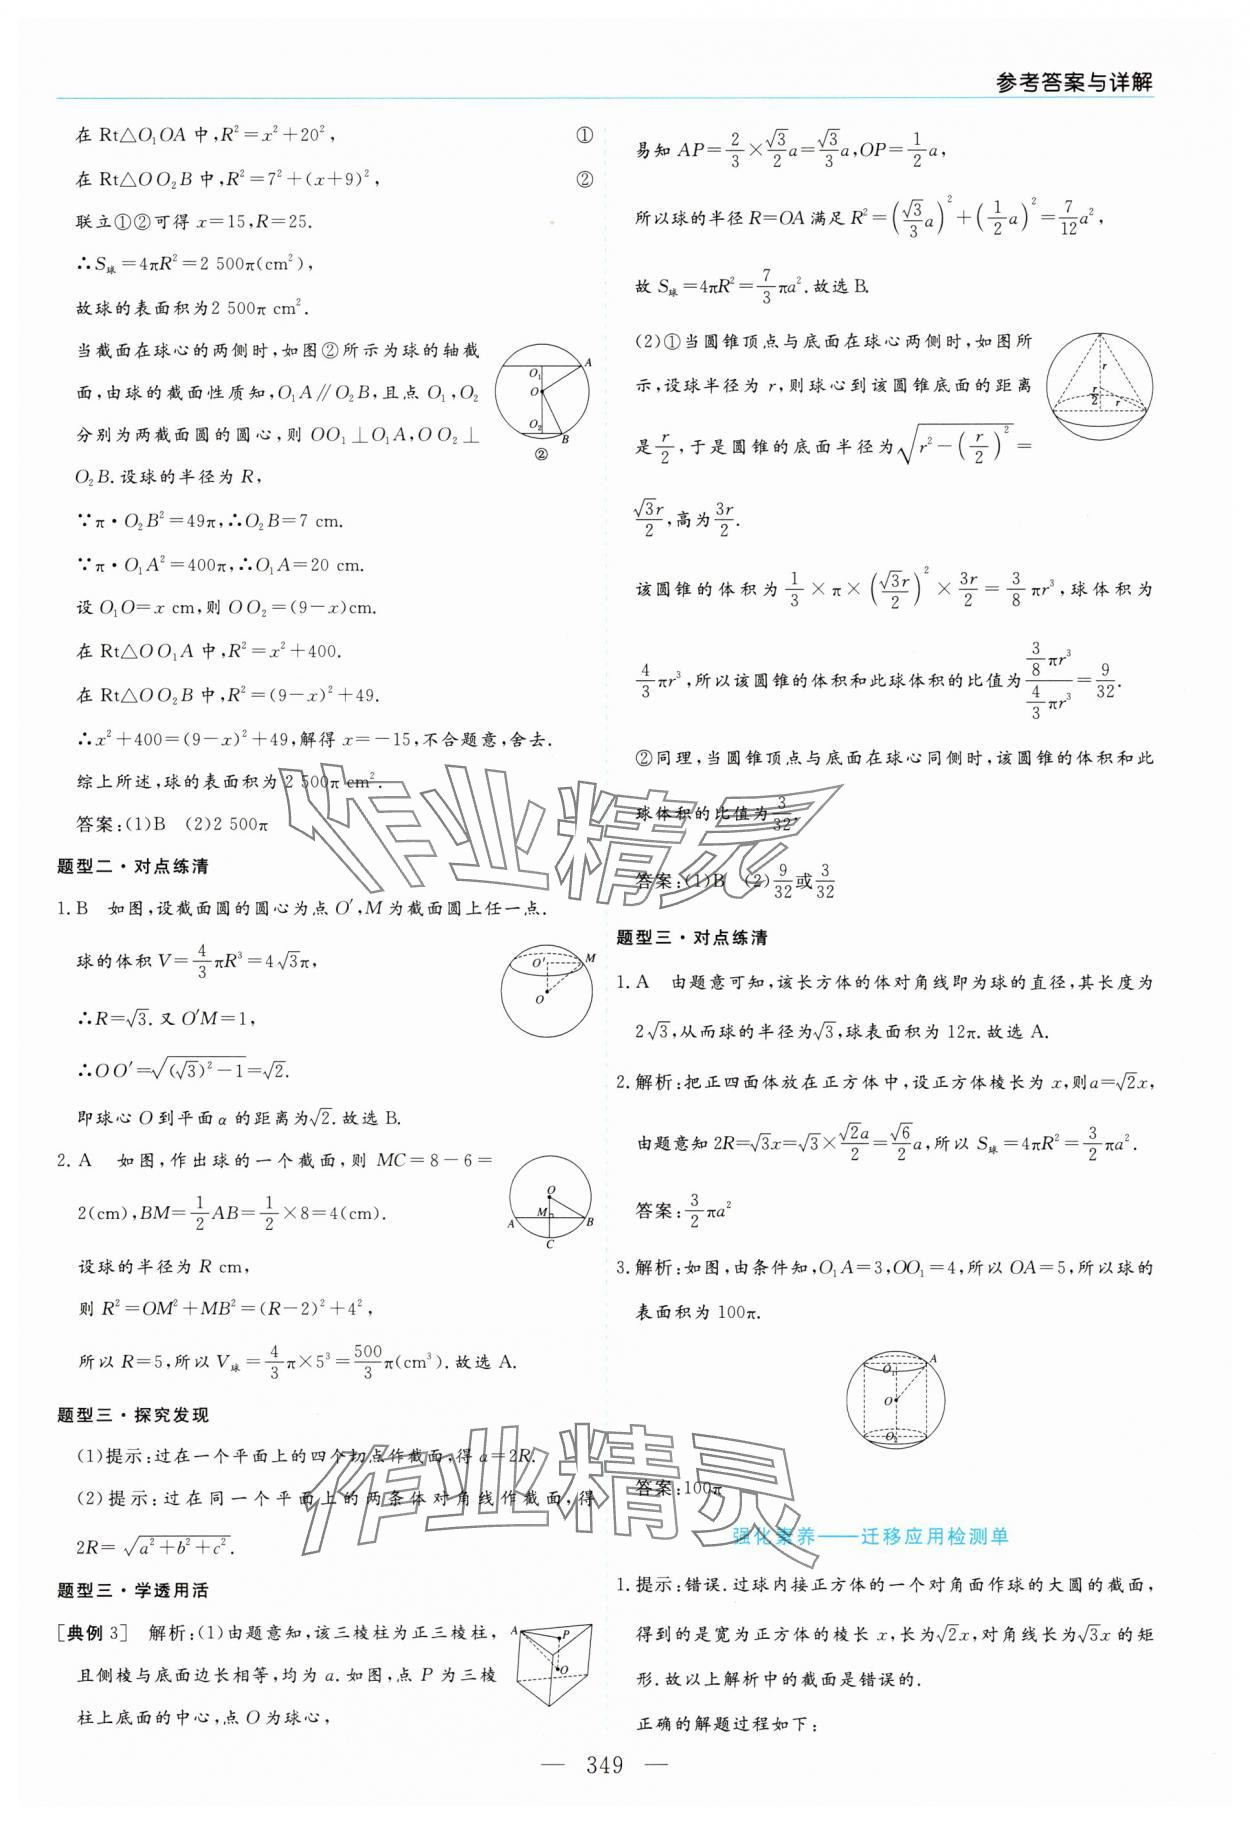 参考答案与详解
在 Rt△O₁OA 中,R²=x²+20², ①
在 Rt△OO₂B 中,R²=7²+(x+9)², ②
联立①②可得 x=15,R=25.
∴S球=4πR²=2 500π(cm²),
故球的表面积为2 500π cm².
当截面在球心的两侧时,如图②所示为球的轴截
面,由球的截面性质知,O₁A∥O₂B,且点 O₁,O₂
分别为两截面圆的圆心,则 OO₁⊥O₁A,OO₂⊥
O₂B.设球的半径为 R,
∵π·O₂B²=49π,∴O₂B=7 cm.
∵π·O₁A²=400π,∴O₁A=20 cm.
设 O₁O=x cm,则 OO₂=(9-x)cm.
在 Rt△OO₁A 中,R²=x²+400.
在 Rt△OO₂B 中,R²=(9-x)²+49.
∴x²+400=(9-x)²+49,解得 x=-15,不合题意,舍去.
综上所述,球的表面积为 2 500π cm².
答案:(1)B (2)2 500π
O₁ A O O₂ B
②
题型二·对点练清
1.B 如图,设截面圆的圆心为点 O′,M 为截面圆上任一点.
球的体积 V=4/3πR³=4√3π,
∴R=√3.又 O′M=1,
∴OO′=√((√3)²-1)=√2.
即球心 O 到平面 α 的距离为√2.故选 B.
O′ M O
2.A 如图,作出球的一个截面,则 MC=8-6=
2(cm),BM=1/2AB=1/2×8=4(cm).
设球的半径为 R cm,
则 R²=OM²+MB²=(R-2)²+4²,
所以 R=5,所以 V球=4/3π×5³=500/3π(cm³).故选 A.
O M A B C
题型三·探究发现
(1)提示:过在一个平面上的四个切点作截面,得 a=2R.
(2)提示:过在同一个平面上的两条体对角线作截面,得
2R=√(a²+b²+c²).
题型三·学透用活
[典例 3] 解析:(1)由题意知,该三棱柱为正三棱柱,
且侧棱与底面边长相等,均为 a.如图,点 P 为三棱
柱上底面的中心,点 O 为球心,
A P O
易知 AP=2/3×√3/2a=√3/3a,OP=1/2a,
所以球的半径 R=OA 满足 R²=(√3/3a)²+(1/2a)²=7/12a²,
故 S球=4πR²=7/3πa².故选 B.
(2)①当圆锥顶点与底面在球心两侧时,如图所
示,设球半径为 r,则球心到该圆锥底面的距离
是r/2,于是圆锥的底面半径为√(r²-(r/2)²)=
√3r/2,高为3r/2.
r r/2 r
该圆锥的体积为1/3×π×(√3r/2)²×3r/2=3/8πr³,球体积为
4/3πr³,所以该圆锥的体积和此球体积的比值为(3/8πr³)/(4/3πr³)=9/32.
②同理,当圆锥顶点与底面在球心同侧时,该圆锥的体积和此
球体积的比值为3/32.
答案:(1)B (2)9/32或3/32
题型三·对点练清
1.A 由题意可知,该长方体的体对角线即为球的直径,其长度为
2√3,从而球的半径为√3,球表面积为 12π.故选 A.
2.解析:把正四面体放在正方体中,设正方体棱长为 x,则a=√2x,
由题意知 2R=√3x=√3×√2a/2=√6/2a,所以 S球=4πR²=3/2πa².
答案:3/2πa²
3.解析:如图,由条件知,O₁A=3,OO₁=4,所以 OA=5,所以球的
表面积为 100π.
O₁ A O O₂
答案:100π
强化素养——迁移应用检测单
1.提示:错误.过球内接正方体的一个对角面作球的大圆的截面,
得到的是宽为正方体的棱长 x,长为√2x,对角线长为√3x 的矩
形.故以上解析中的截面是错误的.
正确的解题过程如下:
— 349 —
作业精灵
作业精灵